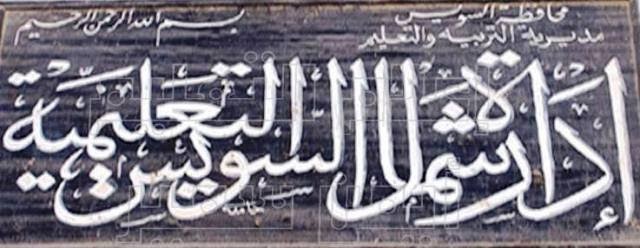 محافظة السويس
بسم الله الرحمن الرحيم
مديرية التربية والتعليم
إدارة شمال السويس التعليمية